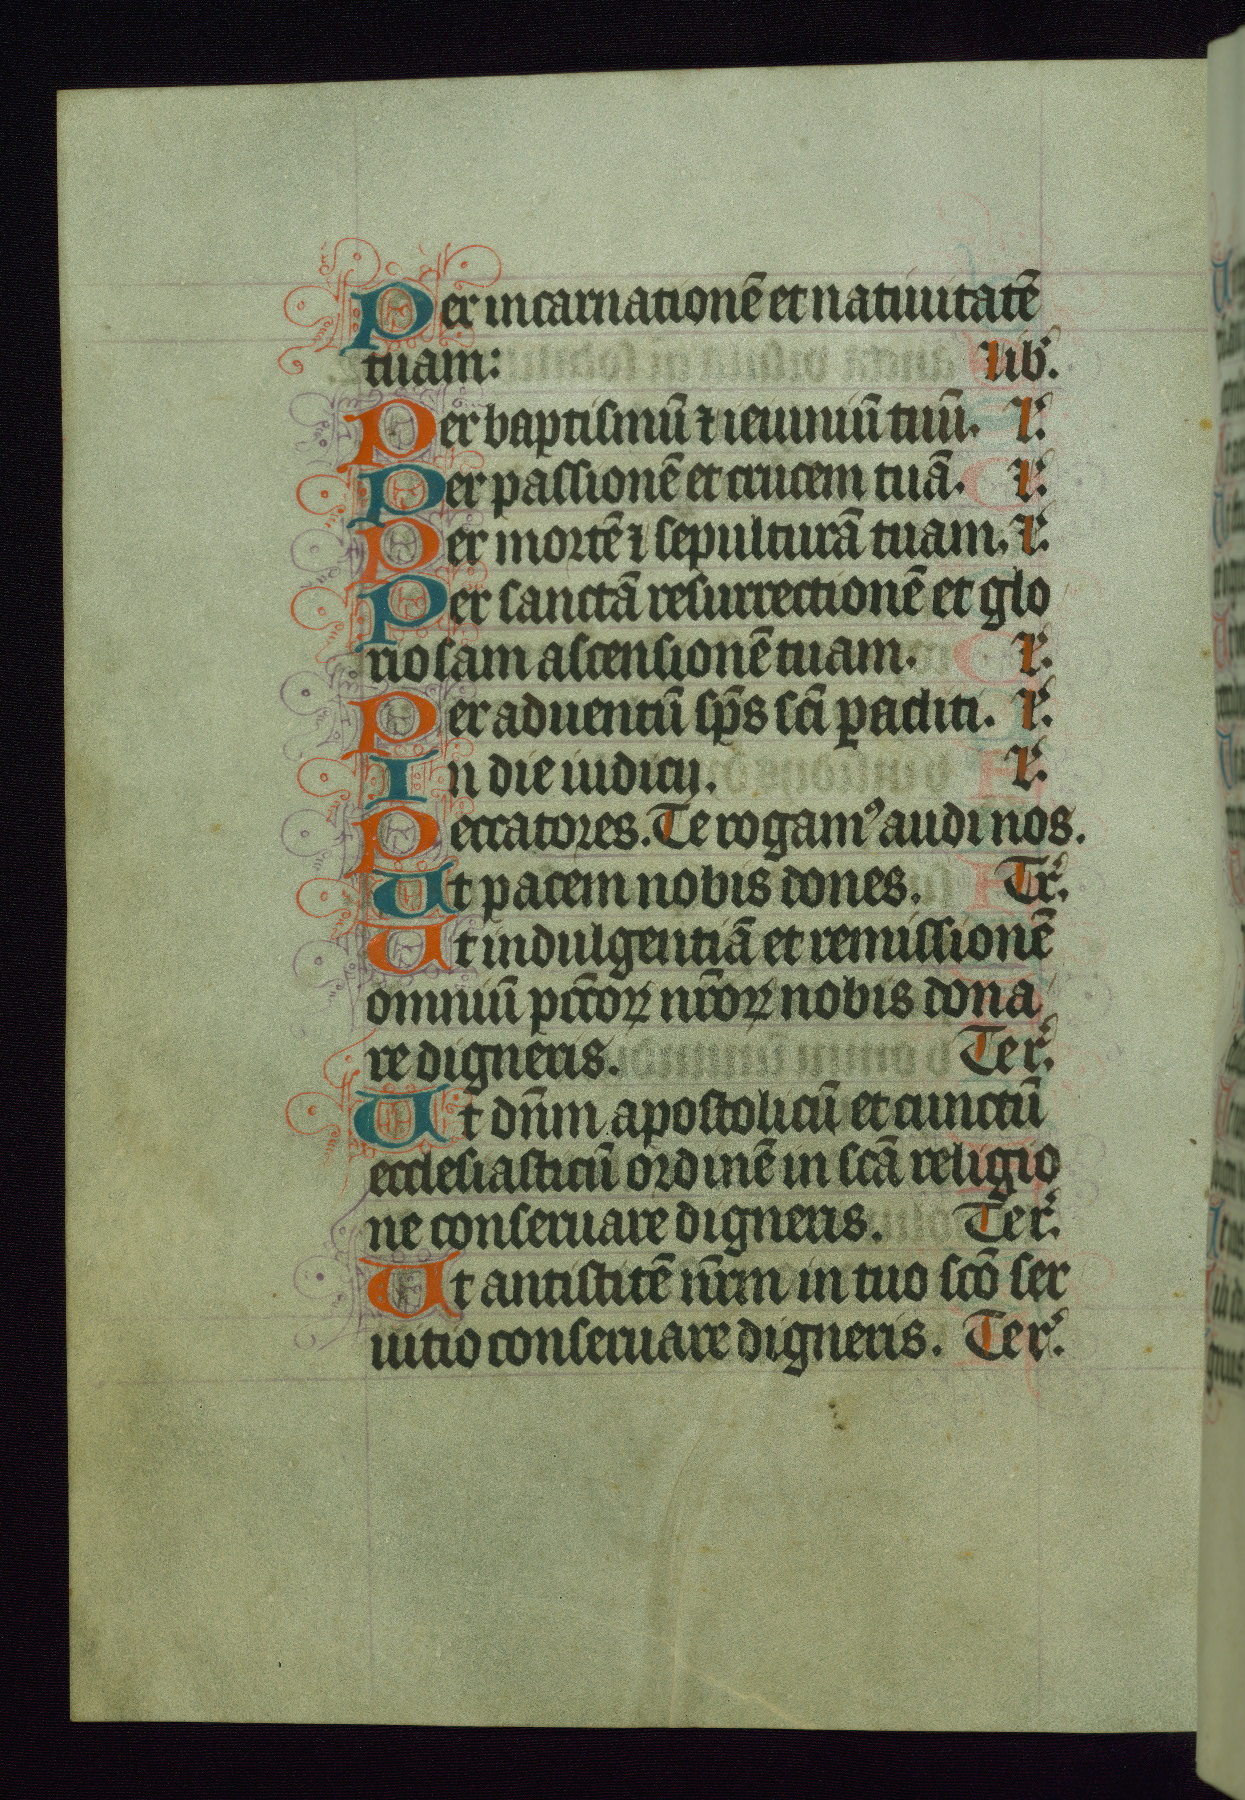 Per incarnationē et natiuitatē
tuam: lib᷒.
Per baptismū ⁊ ieiuniū tuū. l᷒.
Per passionē et crucem tuā. l᷒.
Per mortē ⁊ sepulturā tuam. l᷒.
Per sanctā resurrectionē et glo
riosam ascensionē tuam. l᷒.
Per aduentū sp̄s sc̄i ꝑacliti. l᷒.
In die iudicij. l᷒.
Peccatores. Te rogamꝰ audi nos.
Ut pacem nobis dones. Tr᷒.
Ut indulgentiā et remissionē
omniū pc̄coꝝ nr̄oꝝ nobis dona
re digneris. Te r᷒.
Ut dn̄m apostolicū et cunctū
ecclesiasticū ordinē in sc̄a religio
ne conseruare digneris. Te r᷒.
Ut antistitē nr̄m in tuo sc̄o ser
uitio conseruare digneris. Te r᷒.